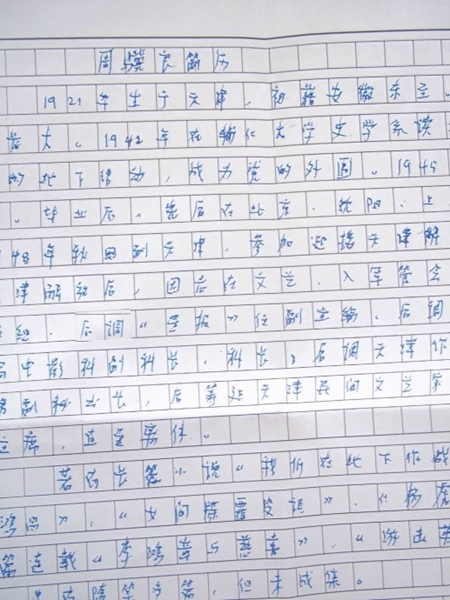 周骥良简历
1921年生于天津,祖籍安徽东至。
大。1942年在辅仁大学史学系读
的地下活动,成为党的外围。1945
。毕业后,先后在北京、沈阳、上
48年秋回到天津,参加迎接天津解
津解放后,因志在文艺,入军管会
组。后调“星报”任副主编,后调
副科长,科长;后调天津作
副秘书长,后筹建天津民间文艺家
主席,直至离休。
著有长篇小说“我们在地下作战
”,“文问
连载“李鸿章与慈禧”,“
等,但未成集。